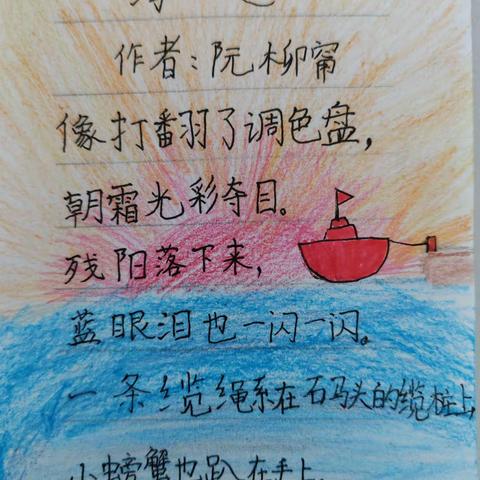 作者：阮柳甯
像打翻了调色盘，
朝霜光彩夺目。
残阳落下来，
蓝眼泪也一闪一闪。
一条缆绳系在码头的缆桩上，
小螃蟹也趴在手上，